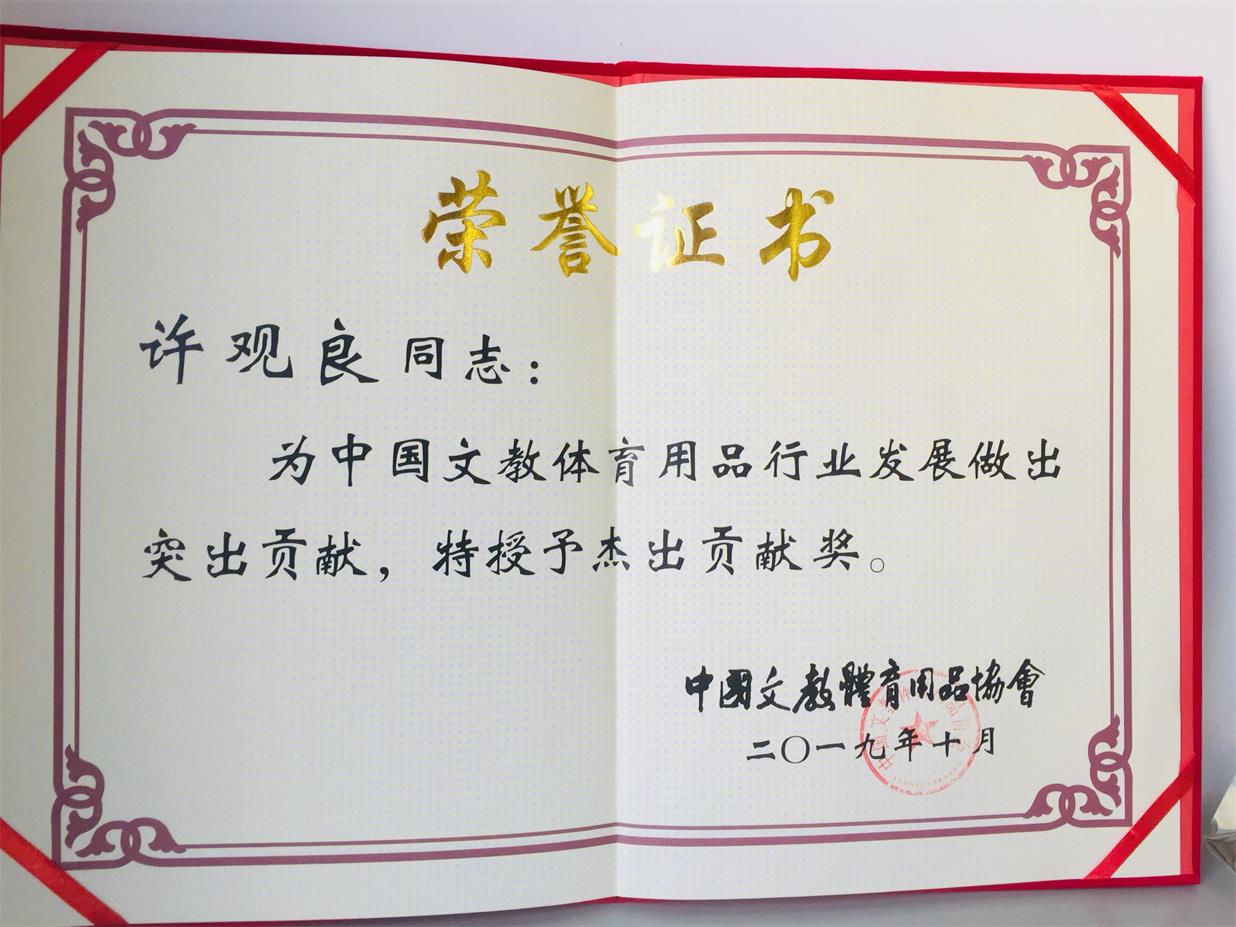 荣誉证书
许观良同志：
为中国文教体育用品行业发展做出
突出贡献，特授予杰出贡献奖。
中國文教體育用品協會
二〇一九年十月